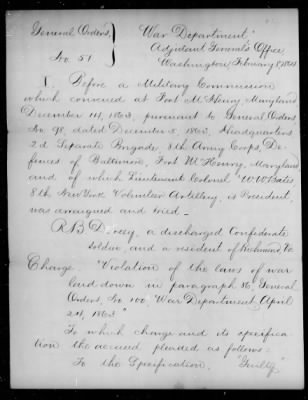 General Orders,
No. 51
War Department,
Adjutant General's Office,
Washington February 8, 1864
I. Before a Military Commission
which convened at Fort McHenry, Maryland
December 14, 1863, pursuant to General Orders
No. 98, dated December 8, 1863, Headquarters
2d Separate Brigade, 8th Army Corps, De-
fences of Baltimore, Fort McHenry, Maryland
and of which Lieutenant Colonel W. W. Bates
8th New York Volunteer Artillery, is President,
was arraigned and tried—
R. B. a discharged Confederate
soldier, and a resident of Richmond, Va
Charge. "Violation of the laws of war
laid down in paragraph 86 General
Orders, No 100, War Department, April
24, 1863"
To which charge and its specifica-
tion the accused, pleaded as follows:
To the Specification, "Guilty"